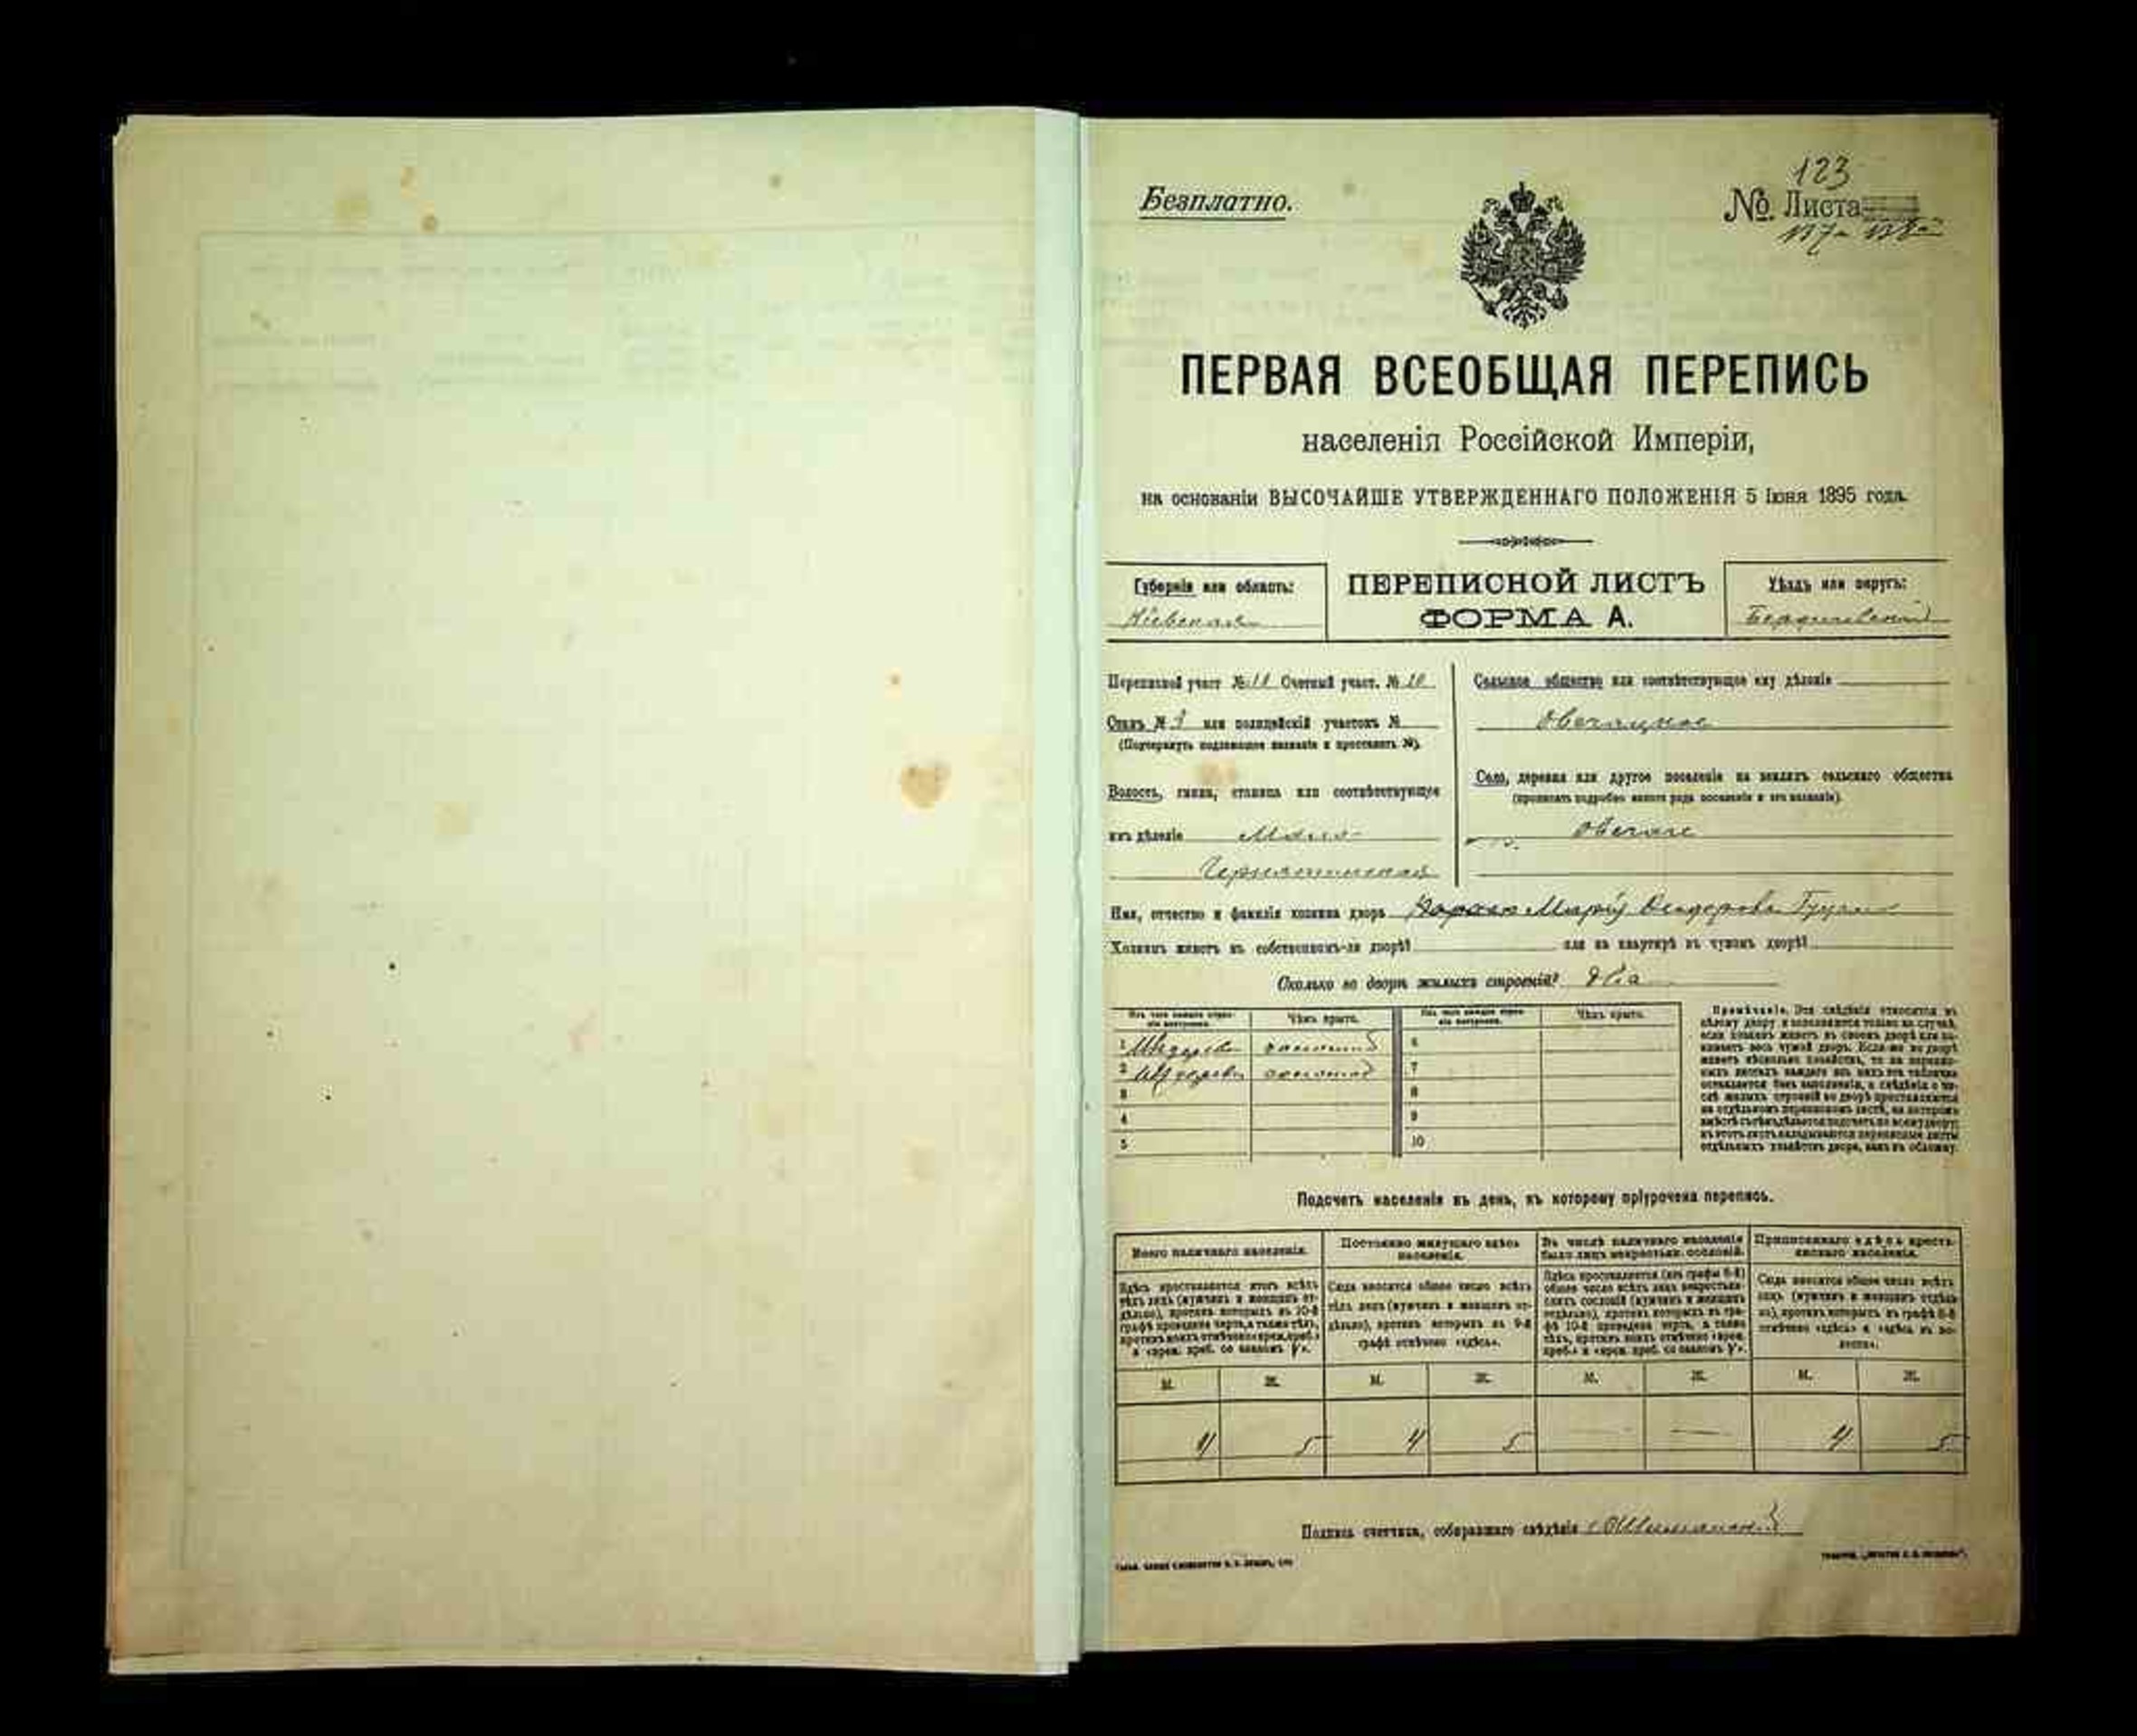 Безплатно.
123
№ Листа
ПЕРВАЯ ВСЕОБЩАЯ ПЕРЕПИСЬ
населенія Россійской Имперіи,
на основаніи ВЫСОЧАЙШЕ УТВЕРЖДЕННАГО ПОЛОЖЕНІЯ 5 Іюня 1895 года.
Губернія или область:
Кіевская
ПЕРЕПИСНОЙ ЛИСТЪ
ФОРМА А.
Уѣздъ или округъ:
Бердичевскій
Переписной участ. № Счетный участ. №
Станъ № или полицейскій участокъ №
(Подчеркнуть подлежащее названіе и проставить №).
Волость, гмина, станица или соотвѣтствующее
имъ дѣленіе Мало-
Чернятинская
Сельское общество или соотвѣтствующее ему дѣленіе
Овечацкое
Село, деревня или другое поселеніе на земляхъ сельскаго общества
(прописать подробно какого рода поселеніе и его названіе).
Овечаче
Имя, отчество и фамилія хозяина двора
Хозяинъ живетъ въ собственномъ-ли дворѣ? или на квартирѣ въ чужомъ дворѣ?
Сколько во дворѣ жилыхъ строеній? два
Изъ чего каждое строеніе построено. Чѣмъ крыто. Изъ чего каждое строеніе построено. Чѣмъ крыто.
1 Изъ дерева соломой 6
2 Изъ дерева соломой 7
3 8
4 9
5 10
Примѣчаніе. Эти свѣдѣнія относятся къ
цѣлому двору и заполняются только въ случаѣ,
если хозяинъ живетъ въ своемъ дворѣ или за-
нимаетъ весь чужой дворъ. Если-же во дворѣ
живетъ нѣсколько хозяйствъ, то на перепис-
ныхъ листахъ каждаго изъ нихъ эта табличка
оставляется безъ заполненія, а свѣдѣнія о чи-
слѣ жилыхъ строеній во дворѣ проставляются
на отдѣльномъ переписномъ листѣ, на которомъ
вмѣстѣ съ тѣмъ дѣлается подсчетъ по всему двору;
въ этотъ листъ вкладываются переписные листы
отдѣльныхъ хозяйствъ двора, какъ въ обложку.
Подсчетъ населенія въ день, къ которому пріурочена перепись.
Всего наличнаго населенія.
Постоянно живущаго здѣсь населенія.
Въ числѣ наличнаго населенія было лицъ некрестьян. сословій.
Приписаннаго здѣсь крестьянскаго населенія.
Здѣсь проставляется итогъ всѣхъ
тѣхъ лицъ (мужчинъ и женщинъ от-
дѣльно), противъ которыхъ въ 10-й
графѣ проведена черта, а также тѣхъ,
противъ коихъ отмѣчено «врем. преб.»
и «врем. преб. со знакомъ V».
Сюда вносится общее число всѣхъ
тѣхъ лицъ (мужчинъ и женщинъ от-
дѣльно), противъ которыхъ въ 9-й
графѣ отмѣчено «здѣсь».
Здѣсь проставляется (изъ графы 6-й)
общее число всѣхъ лицъ некрестьян-
скихъ сословій (мужчинъ и женщинъ
отдѣльно), противъ которыхъ въ гра-
фѣ 10-й проведена черта, а также
тѣхъ, противъ коихъ отмѣчено «врем.
преб.» и «врем. преб. со знакомъ V».
Сюда вносится общее число всѣхъ
лицъ (мужчинъ и женщинъ отдѣль-
но), противъ которыхъ въ графѣ 8-й
отмѣчено «здѣсь» и «здѣсь въ во-
лости».
М. Ж. М. Ж. М. Ж. М. Ж.
4 5 4 5 — — 4 5
Подпись счетчика, собиравшаго свѣдѣнія